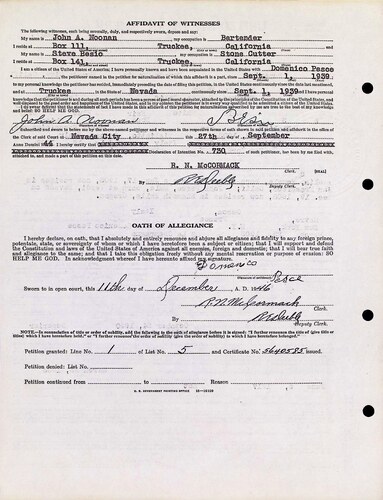 AFFIDAVIT OF WITNESSES
The following witnesses, each being severally, duly, and respectively sworn, depose and say:
My name is John A. Noonan, my occupation is Bartender
I reside at Box 111, Truckee, California
My name is Steve Besio, my occupation is Stone Cutter
I reside at Box 141, Truckee, California
I am a citizen of the United States of America; I have personally known and have been acquainted in the United States with Domenico Pesce
, the petitioner named in the petition for naturalization of which this affidavit is a part, since Sept. 1, 1939.
to my personal knowledge the petitioner has resided, immediately preceding the date of filing this petition, in the United States continuously since the date last mentioned,
and at Truckee in Nevada continuously since Sept. 1, 1939
SO HELP ME GOD.
John A. Noonan S Besio
Subscribed and sworn to before me by the above-named petitioner and witnesses in the respective forms of oath shown in said petition and affidavit in the office of the
Clerk of said Court at Nevada City this 27th day of September
Anno Domini 19 46 I hereby certify that
Declaration of Intention No. 730 of such petitioner, has been by me filed with,
attached to, and made a part of this petition on this date.
R. N. McCORMACK
Clerk. [SEAL]
By
Deputy Clerk.
OATH OF ALLEGIANCE
I hereby declare, on oath, that I absolutely and entirely renounce and abjure all allegiance and fidelity to any foreign prince,
potentate, state, or sovereignty of whom or which I have heretofore been a subject or citizen; that I will support and defend
the Constitution and laws of the United States of America against all enemies, foreign and domestic; that I will bear true faith
and allegiance to the same; and that I take this obligation freely without any mental reservation or purpose of evasion: SO
HELP ME GOD. In acknowledgment whereof I have hereunto affixed my signature.
Domenico Pesce
Sworn to in open court, this 11th day of December, A. D. 1946
R.N. McCormack
Clerk.
By
Deputy Clerk.
NOTE.—In renunciation of title or order of nobility, add the following to the oath of allegiance before it is signed: "I further renounce the title of (give title or
titles) which I have heretofore held," or "I further renounce the order of nobility (give the order of nobility) to which I have heretofore belonged."
Petition granted: Line No. 1 of List No. 5 and Certificate No. 5640585 issued.
Petition denied: List No.
Petition continued from to Reason
U. S. GOVERNMENT PRINTING OFFICE